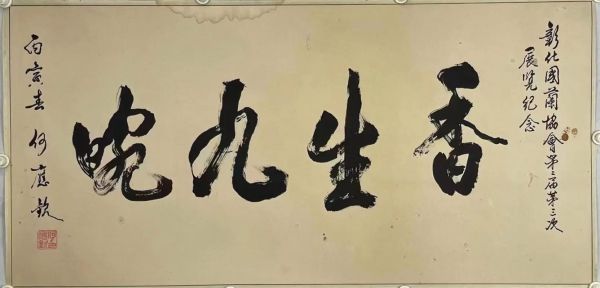 彰化國蘭協會第二屆第三次
展覽紀念
香生九畹
丙寅春 何應欽